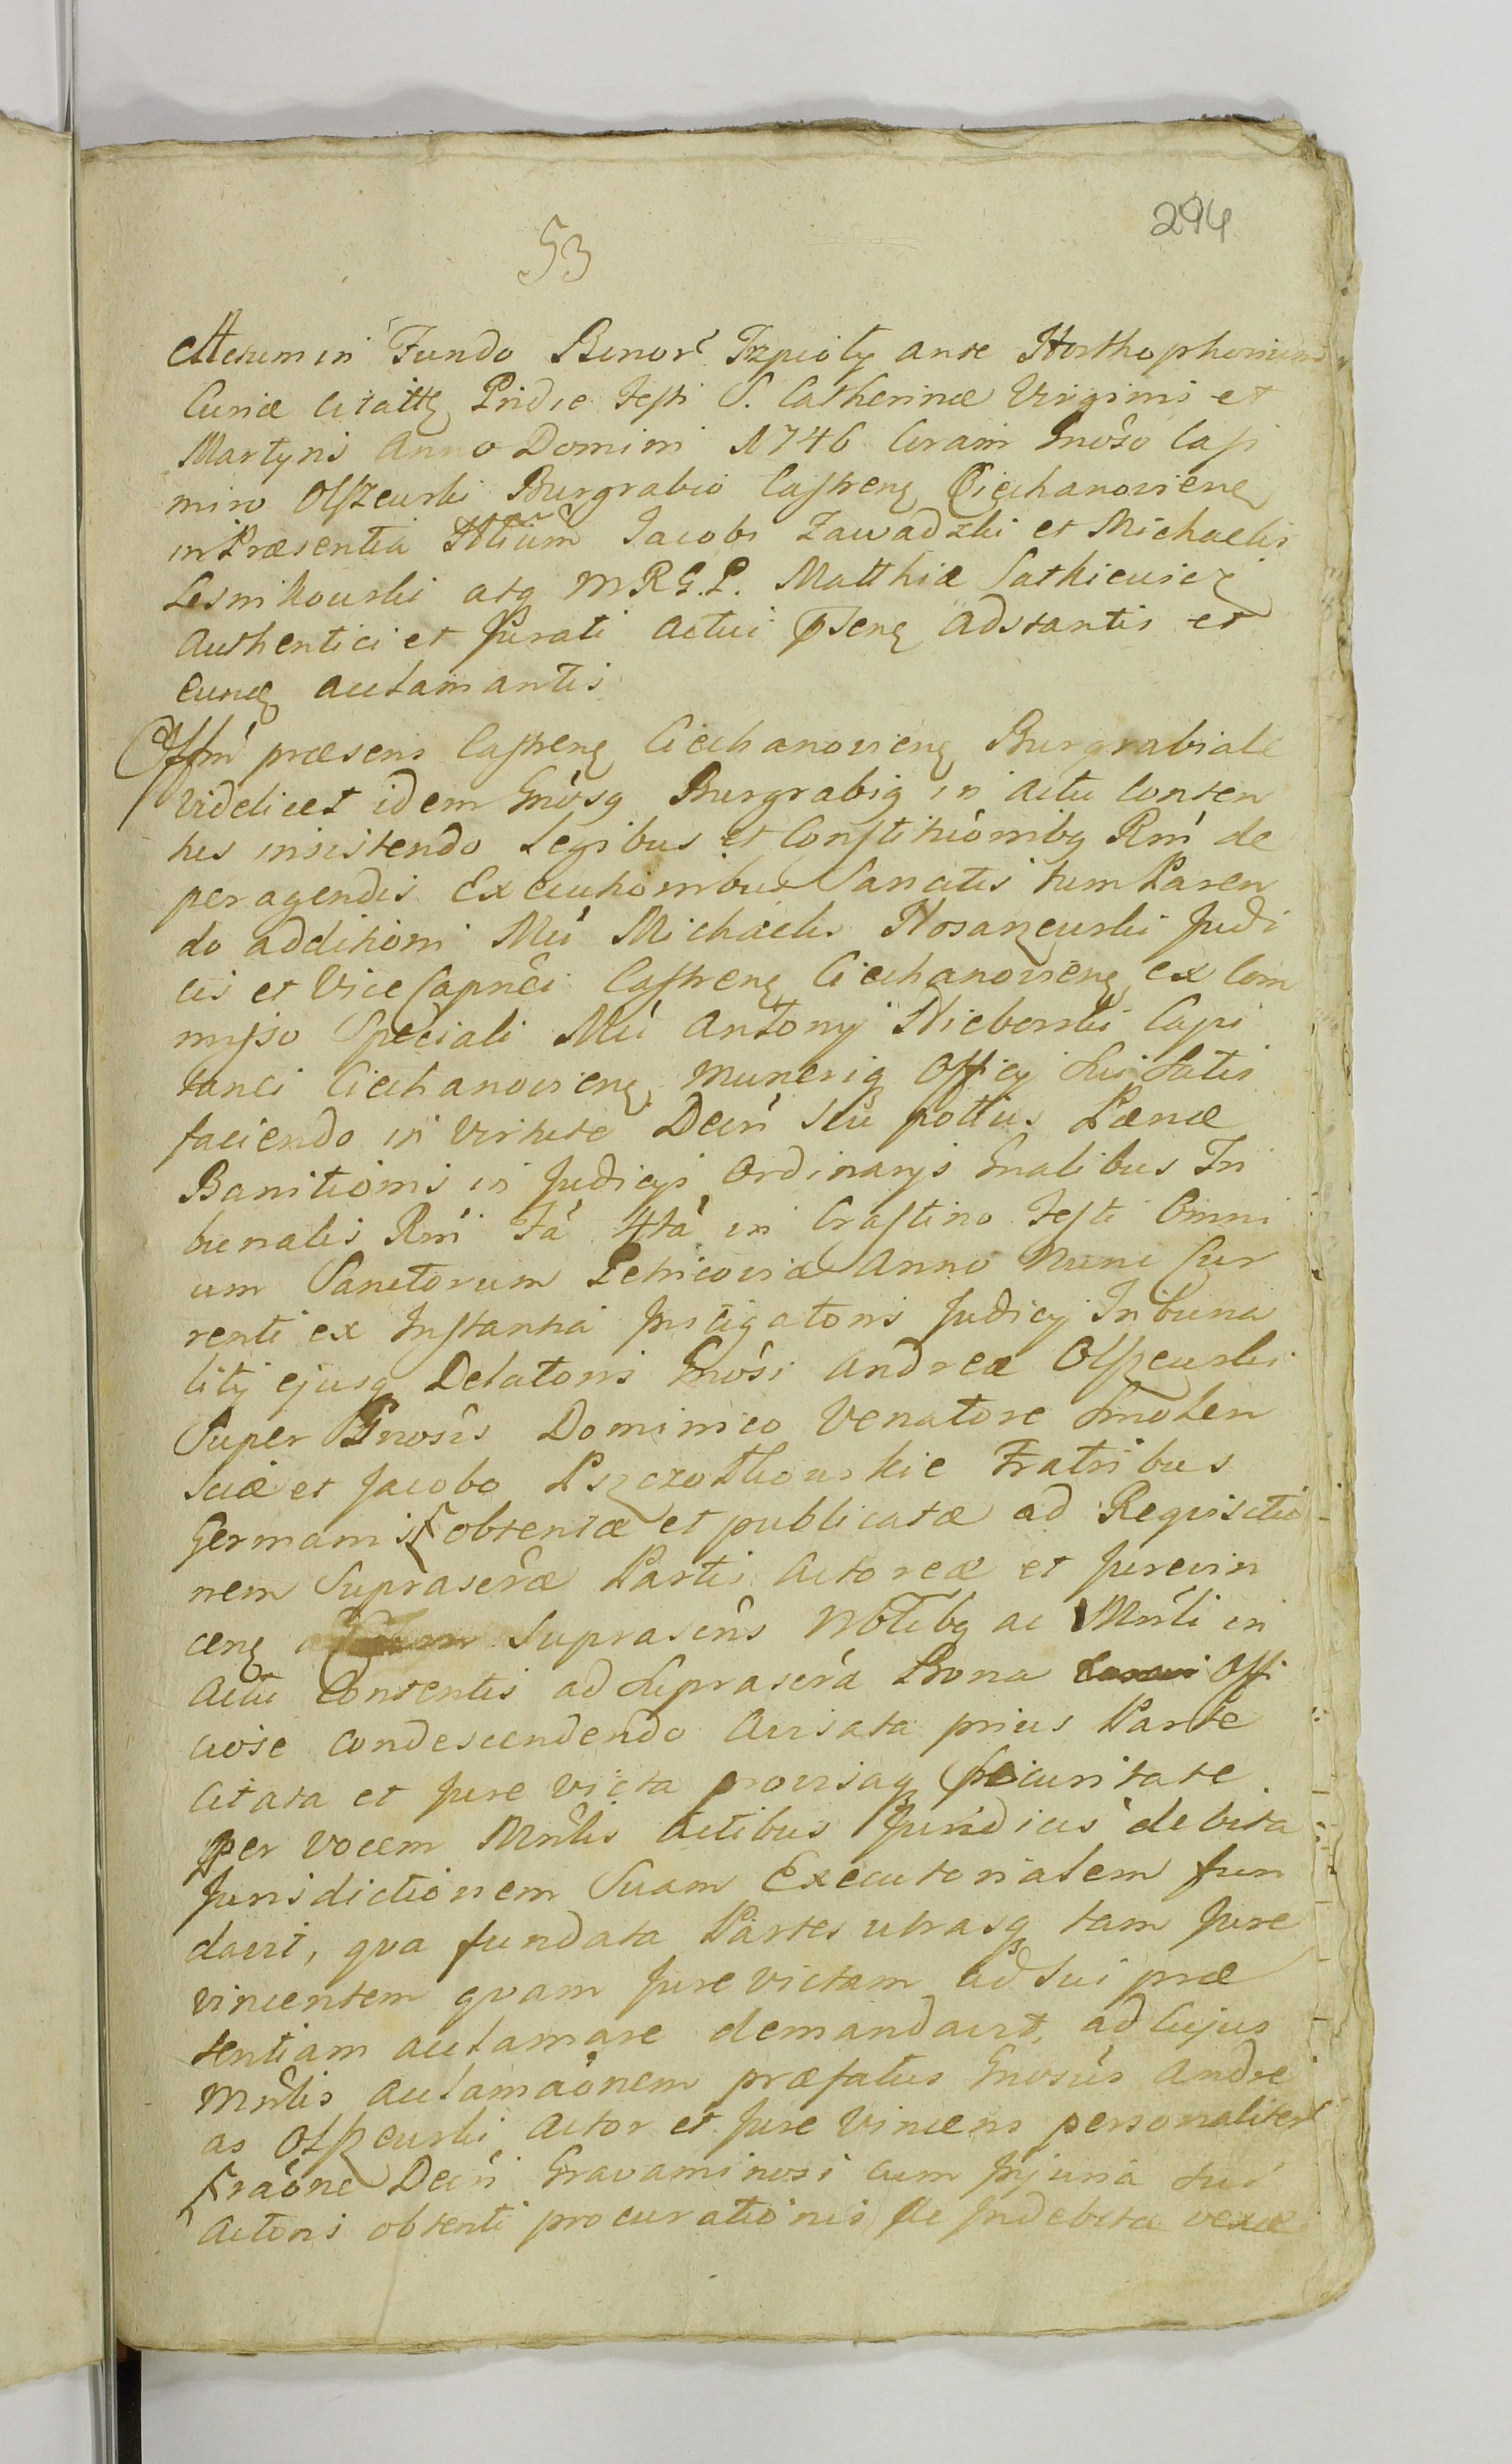 294
53
Actum in Fundo Bonor. Trzpioły ante Horthophonium
Curiæ citattæ Pridie Festi S. Catherinæ Virginis et
Martyris Anno Domini 1746 Coram Gnoso Casi
miro Olszewski Burgrabio Castrens Ciechanoviens
in Præsentia Nbtium Jacobi Zawadzki et Michaelis
Lesnikowski atq M R G. P. Matthiæ Satkiewicz
Authentici et Jurati actui pñseng adstantis et
eung acclamantis
Offm præsens Castreng Ciechanovieng Burgrabiale
videlicet idem Gnosq Burgrabiq in actu Conten
tus insistendo Legibus et Constitnõmibq Rni de
peragendis Executionibus Sancitis tum Paren
do additioni Mci Michaelis Nosarzewski Judi
cis et Vice Capnei Castreng Ciechanovieng ex Com
mysso Speciali Mci Antony Nieborski Capi
tanei Ciechanovieng, munerig Officy Sui Satis
faciendo in virtute Decri seu potius Pænæ
Banitionis in Judicys Ordinarys Gnalibus Tri
bunalis Rni Fa 4ta in Crastino Festi Omni
um Sanctorum Petricoviæ Anno Nunc Cur
renti ex Instantia Instigatoris Judicy Tribuna
litÿ ejusq Delatoris Gnosi Andreæ Olszewski
Super Gnosis Dominico Venatore Smolen
sciæ et Jacobo Pszczołkowskie Fratribus
Germanis obtentæ et publicatæ ad Requisitio
nem Suprascræ Partis Actoreæ et Jurevin
ceng Suprascris Nbtibq ac Mnrli in
actu Contentis ad Suprascra Bona Offi
ciose condescendendo Avisata prius Parte
Citata et Jure victa provisaq securitate
per vocem Mnrlis actibus Juridicis debita
Jurisdictionem Suam Executorialem fun
davit, qva fundata Partes utrasq tam Jure
vincentem qvam Jure victam ad sui præ
sentiam acclamare demandavit, ad Cujus
Mnrlis acclamaõnem præfatus Gnosus Andre
as Olszewski Actor et Jure Vincens personaliter
raõne Decri Gravaminosi cum Injuria sui
Actoris obtenti procurationis de Indebita vexæ